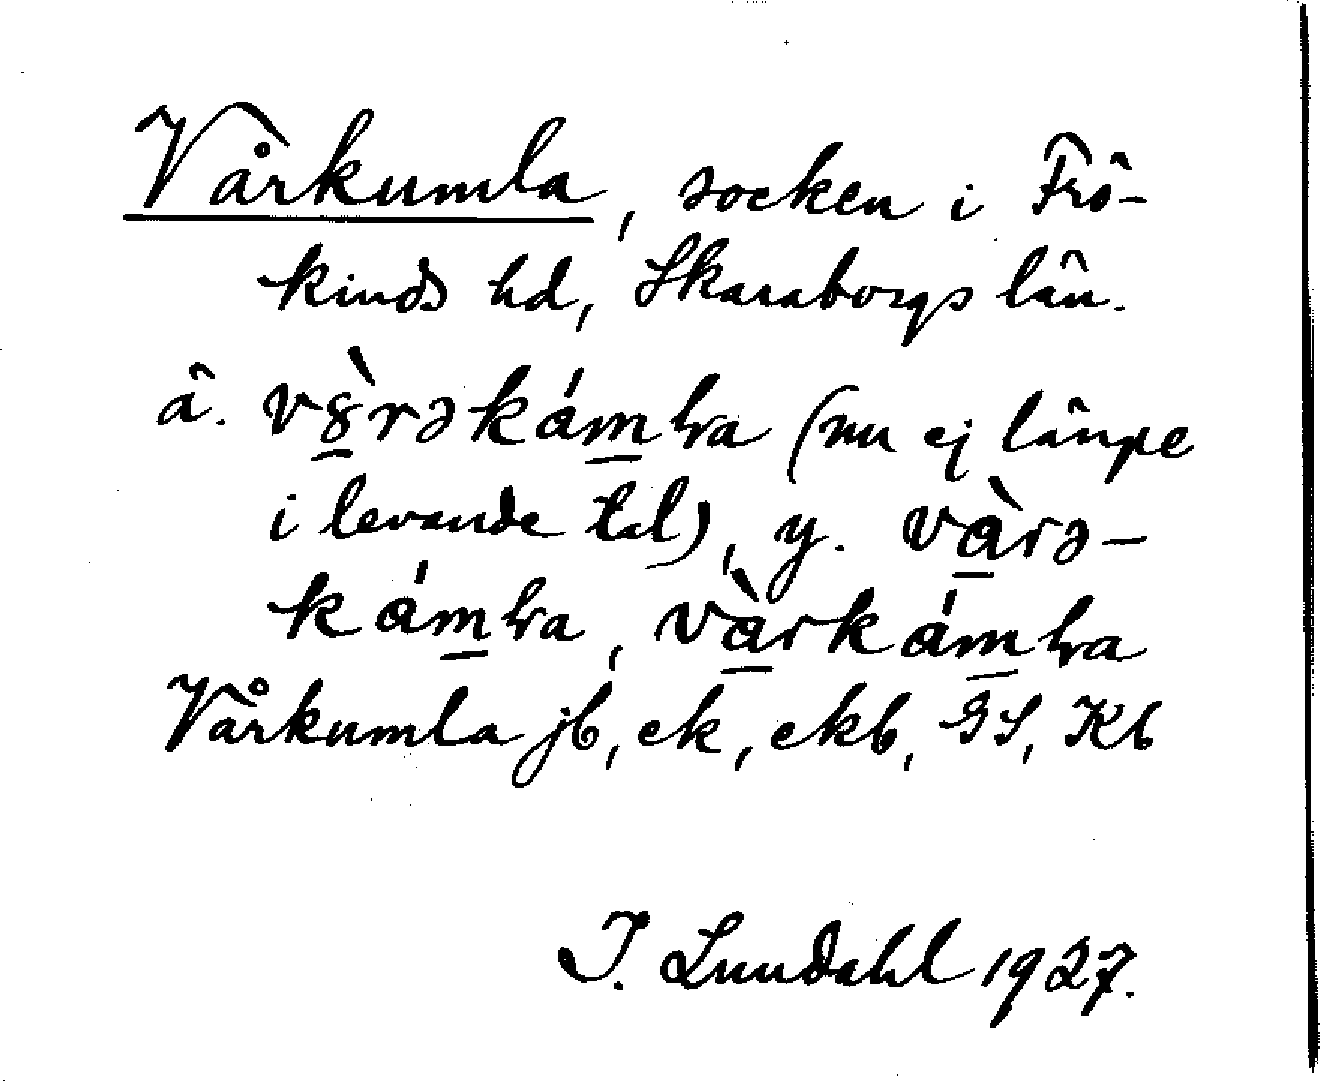 Vårkumla, socken i Frö-
kinds hd, Skaraborgs län.
ä. v8̱̀rəkám̱ɫa (nu ej längre
i levande tal), y. và̱rə-
kám̱ɫa, và̱rkám̱ɫa
Vårkumla jb, ek, ekb, GS, Kb
I. Lundahl 1927.